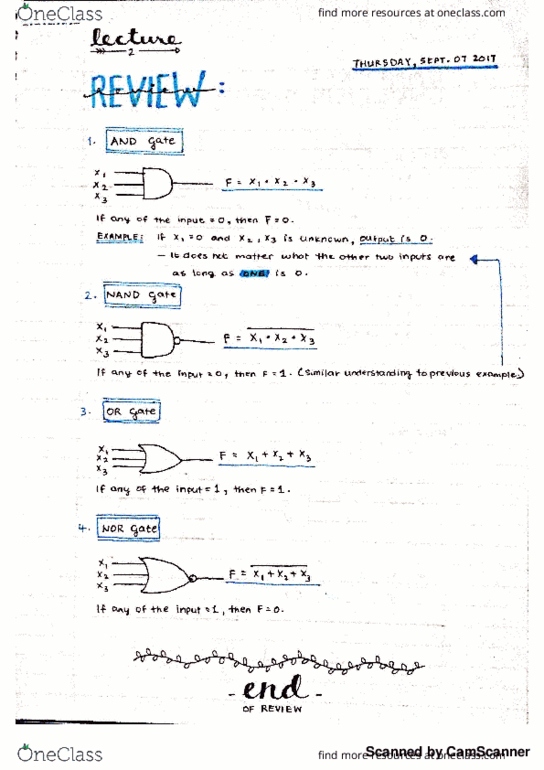 OneClass
find more resources at oneclass.com
lecture
2
THURSDAY, SEPT. 07 2017
REVIEW:
1. AND Gate
X1
X2
X3
F = X1 • X2 • X3
If any of the input = 0, then F = 0.
EXAMPLE: If X1 = 0 and X2, X3 is unknown, output is 0.
– It does not matter what the other two inputs are
as long as ONE is 0.
2. NAND Gate
X1
X2
X3
F = X̅1̅ ̅•̅ ̅X̅2̅ ̅•̅ ̅X̅3̅
If any of the input = 0, then F = 1. (similar understanding to previous example)
3. OR Gate
X1
X2
X3
F = X1 + X2 + X3
If any of the input = 1, then F = 1.
4. NOR Gate
X1
X2
X3
F = X̅1̅ ̅+̅ ̅X̅2̅ ̅+̅ ̅X̅3̅
If any of the input = 1, then F = 0.
- end -
OF REVIEW
OneClass
find more resources at oneclass.com
Scanned by CamScanner